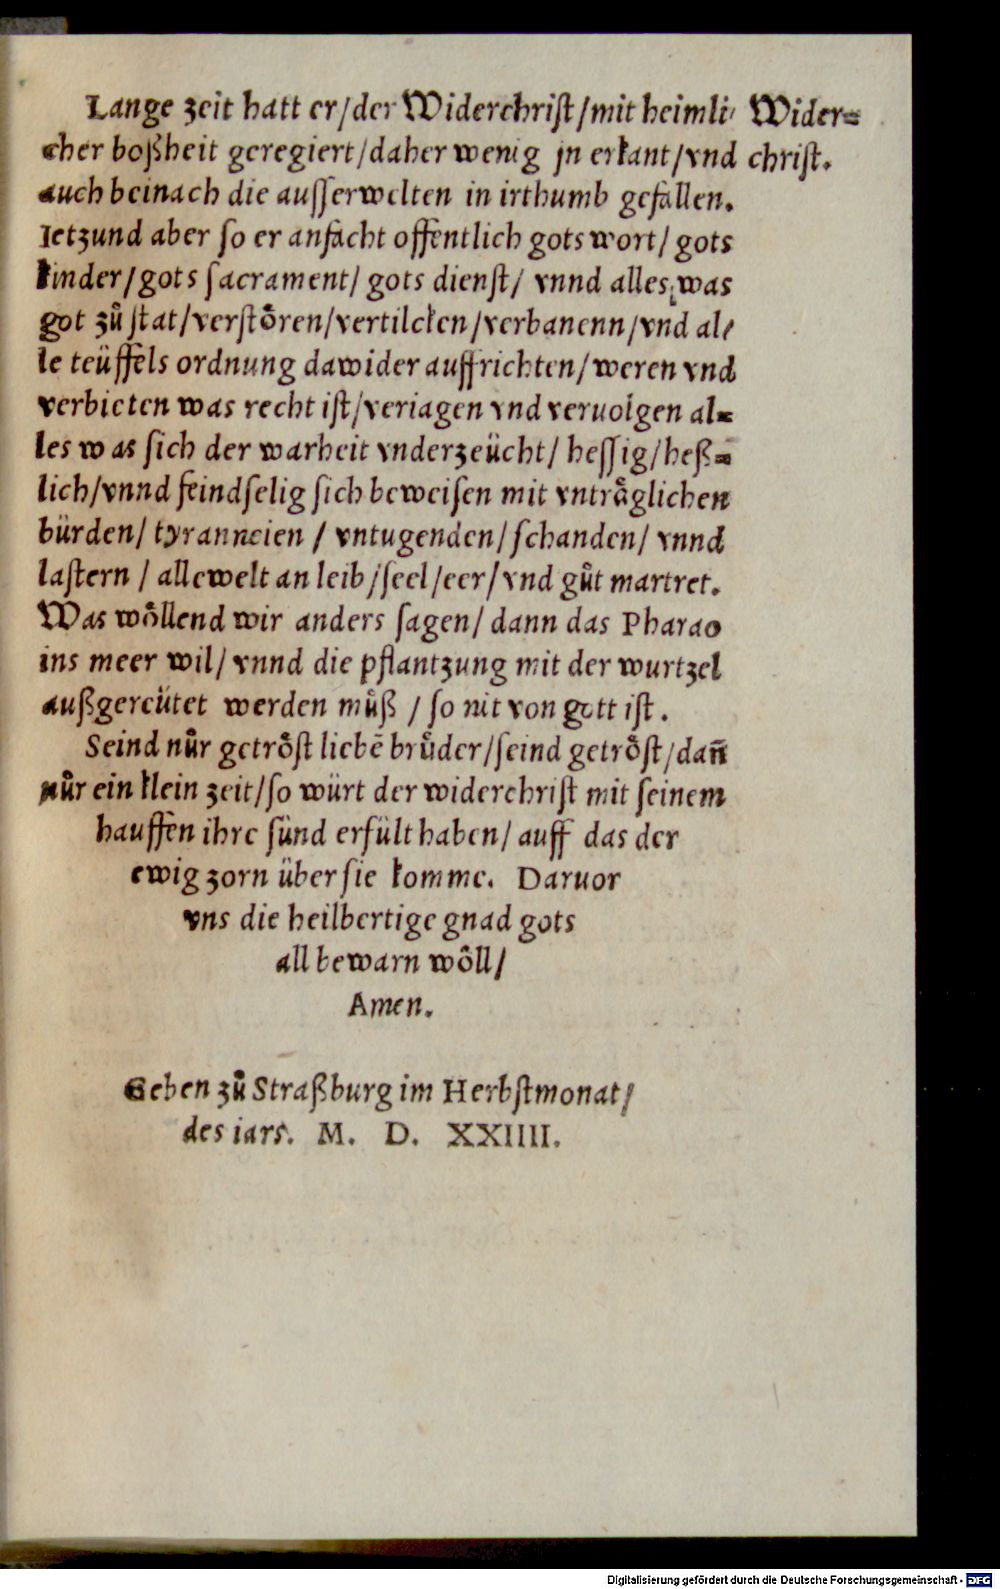 Lange zeit hatt er/der Widerchriſt/mit heimli⸗
cher boßheit geregiert/daher wenig jn erkant/vnd
auch beinach die auſſerwelten in irthumb gefallen.
Ietzund aber ſo er anfacht offentlich gots wort/ gots
kinder/gots ſacrament/ gots dienſt/ vnnd alles was
got zuͦ ſtat/verſtoͤren/vertilcken/verbanenn/vnd al⸗
le teüffels ordnung dawider auffrichten/weren vnd
verbieten was recht iſt/veriagen vnd veruolgen al⸗
les was ſich der warheit vnderzeücht/ heſſig/heß⸗
lich/vnnd feindſelig ſich beweiſen mit vntraͤglichen
bürden/ tyranneien / vntugenden/ ſchanden/ vnnd
laſtern / alle welt an leib/ſeel/eer/vnd guͦt martret.
Was woͤllend wir anders ſagen/ dann das Pharao
ins meer wil/ vnnd die pflantzung mit der wurtzel
außgereütet werden muͦß / ſo nit von gott iſt.
Seind nuͦr getroͤſt liebē bruͤder/ſeind getroͤſt/dan̄
nuͦr ein klein zeit/ſo würt der widerchriſt mit ſeinem
hauffen ihre ſünd erfült haben/ auff das der
ewig zorn über ſie komme. Daruor
vns die heilbertige gnad gots
all bewarn woͤll/
Amen.
Geben zuͦ Straßburg im Herbſtmonat/
des iars. M. D. XXIIII.
Wider⸗
chriſt.
Digitalisierung gefördert durch die Deutsche Forschungsgemeinschaft - DFG